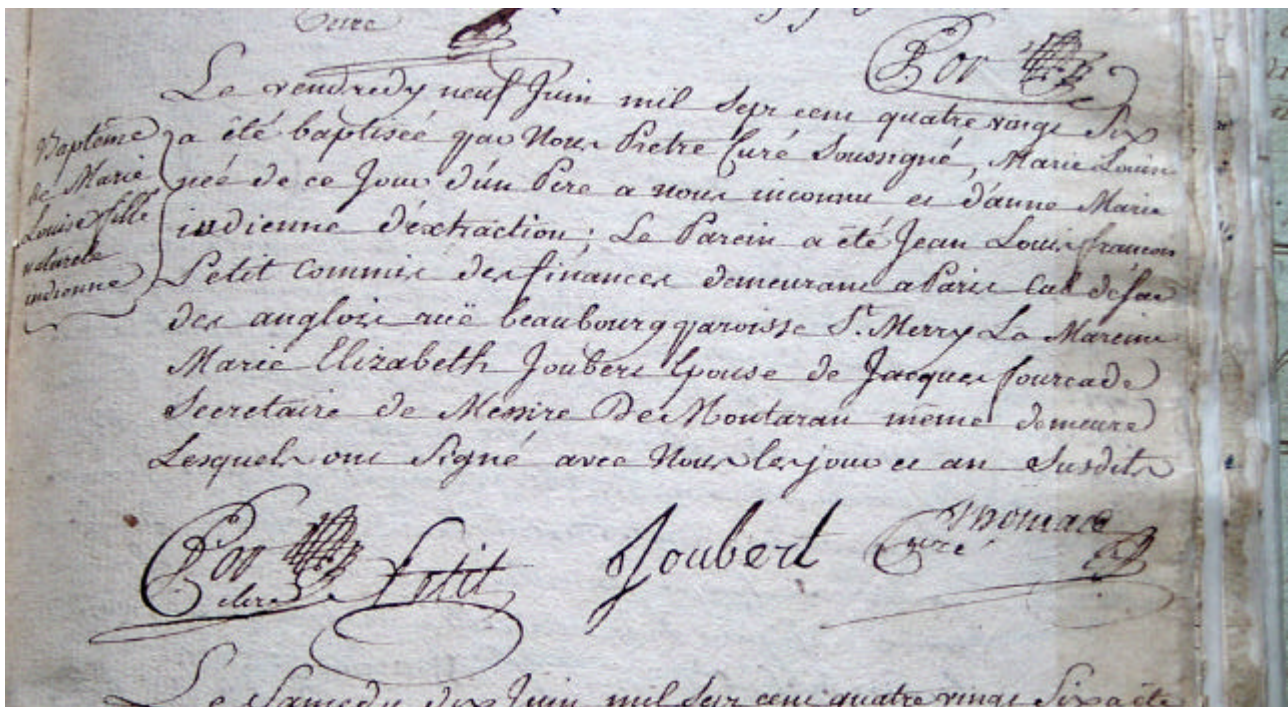 Curé
Le vendredy neuf Juin mil Sept cent quatre vingt Six
a été baptisée par Nous Pretre Curé Soussigné, Marie Louise
née de ce Jour d'un Pere a nous inconnu et d'anne Marie
indienne d'extraction; Le Parein a été Jean Louis francois
Petit Commis des finances demeurant a Paris Cul de Sac
des anglois ruë beaubourg paroisse St. Merry La Mareine
Marie Elizabeth Joubert Epouse de Jacques fourcade
Secretaire de Messire De Montaran même demeure
Lesquels ont Signé avec Nous les jour et an Susdits
Baptême
de Marie
Louise fille
naturele
indienne
Petit Joubert Thomas
Curé
Le Samedy dix Juin mil Sept cent quatre vingt Six a éte